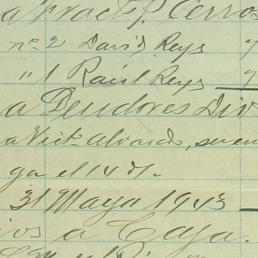 a Pract. P. Cerro
nº 2 David Reys 7
" 1 Raúl Reys 7
a Deudores Div
a Vict Alvarado, su en
ga el 14 d/.
31 Mayo 1943
ios a Caja.